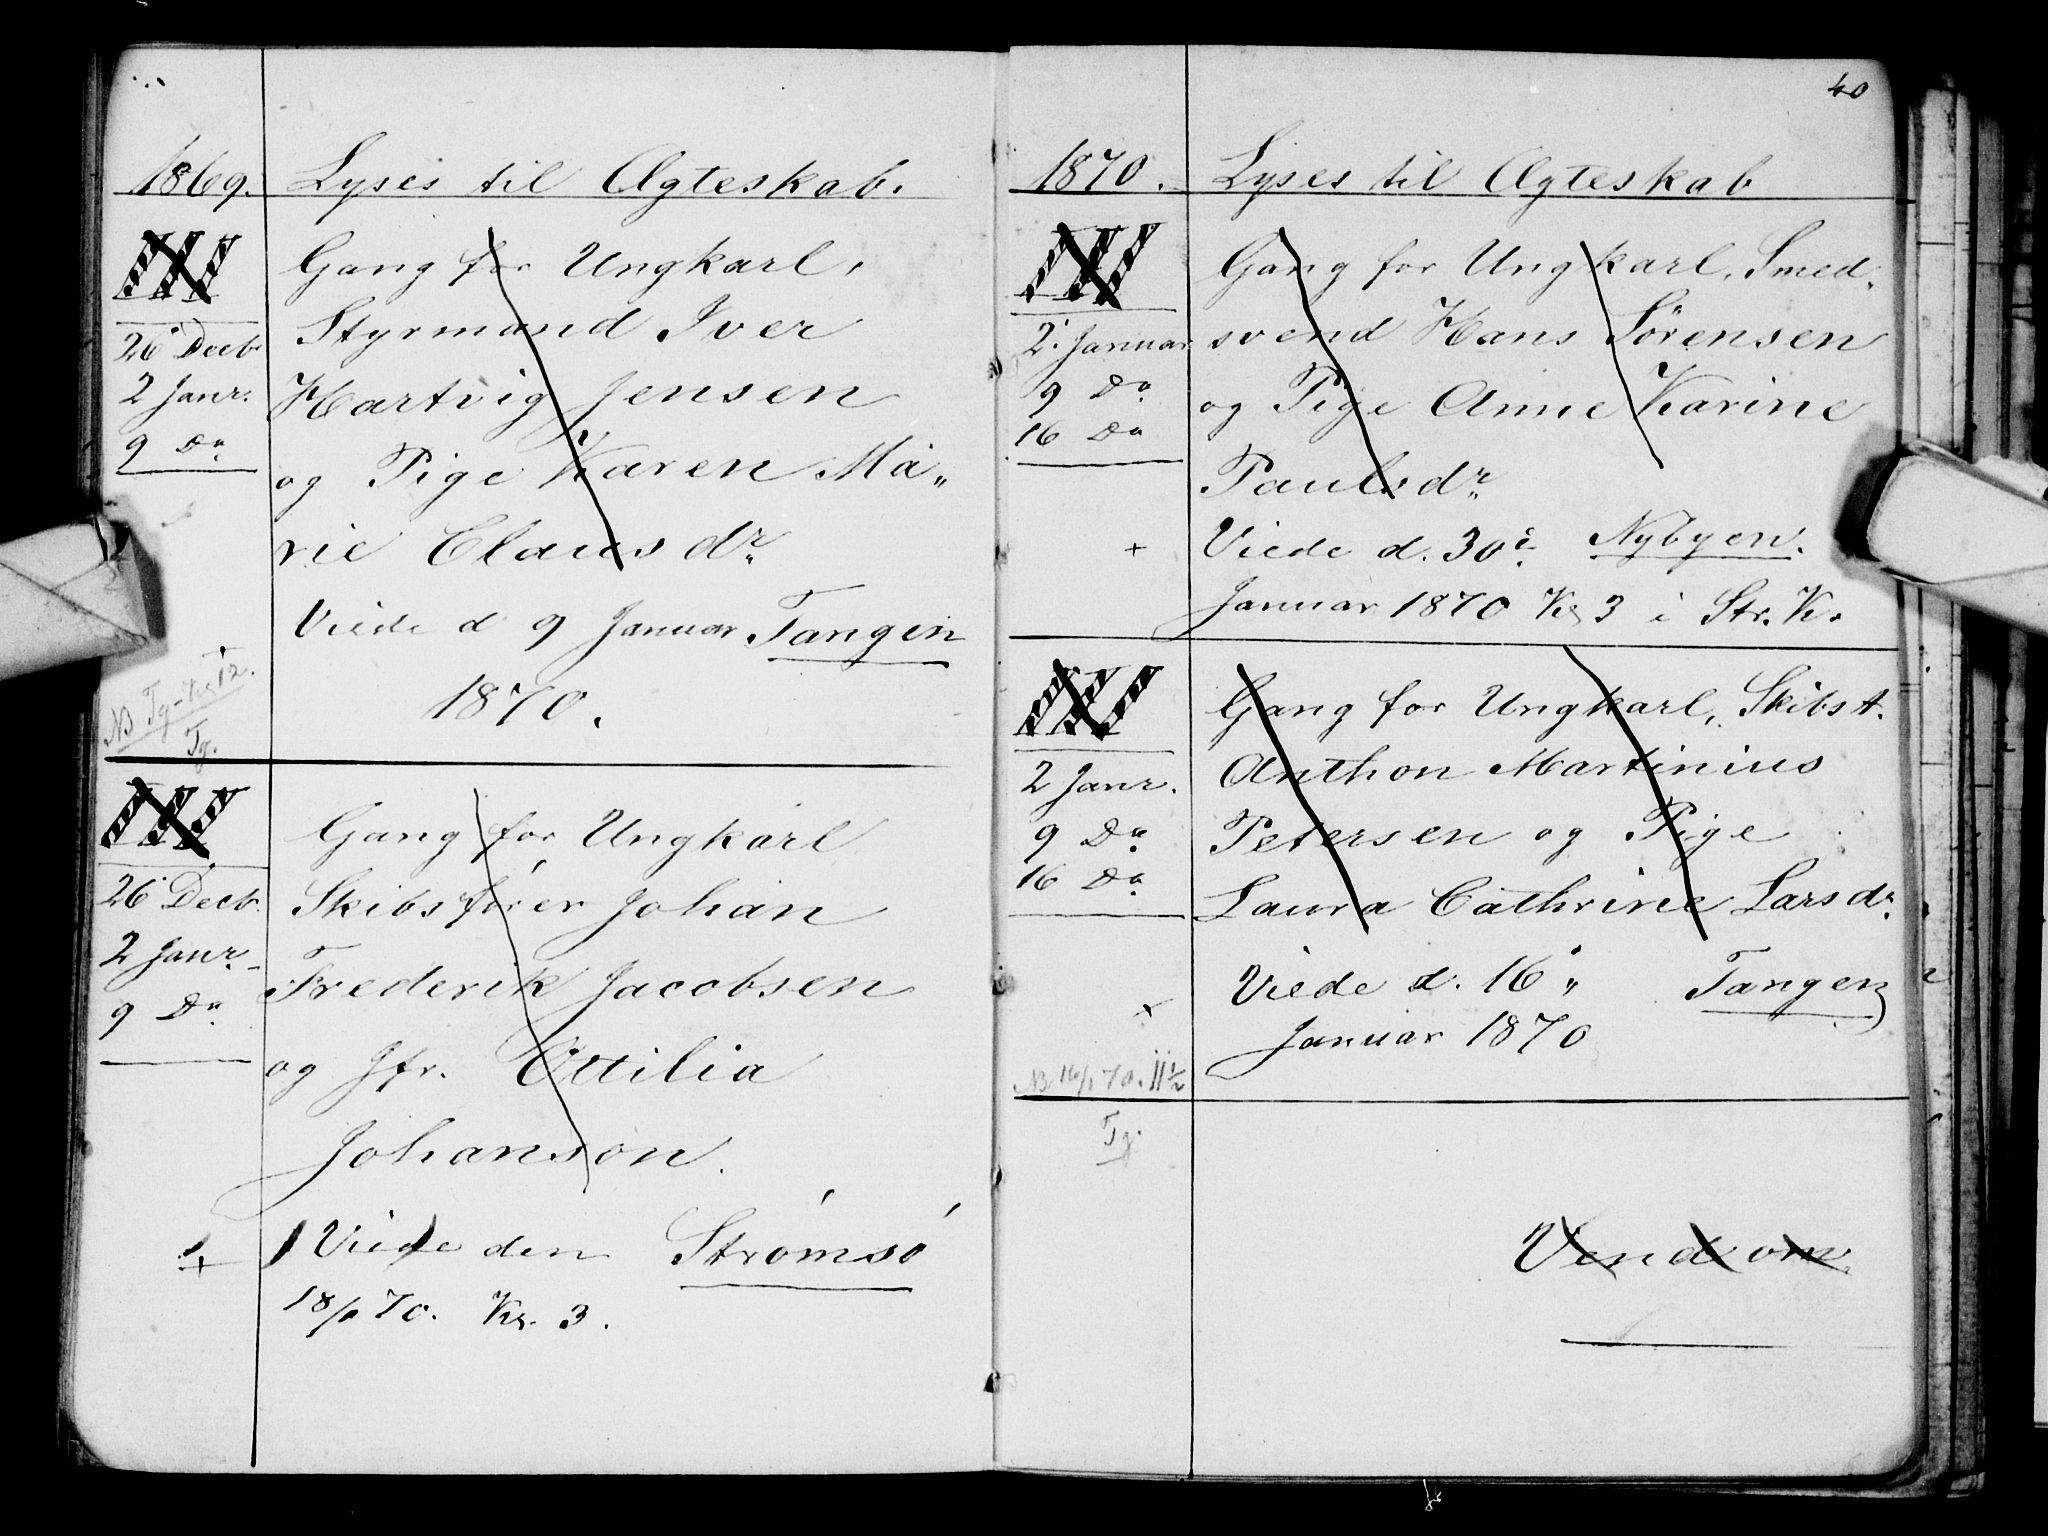 1869. Lyses til Ægteskab.
III Gang for Ungkarl,
Styrmand Iver
26 Decb. Hartvig Jensen
2 Janr. og Pige Karen Ma„
9 Do. rie Clausdr.
Viede d 9 Januar Tangen
1870.
NB Tg-Kl. 12.
Tg.
III Gang for Ungkarl
26 Decb. Skibsfører Johan
2 Janr. Frederik Jacobsen
9 Do. og Jfr. Ottilia
Johanson.
+ Viede den Strømsø
18/1 70. Kl. 3.
40
1870. Lyses til Ægteskab
III Gang for Ungkarl, Smed„
2. Januar svend Hans Sørensen
9 Do. og Pige Anne Karine
16 Do. Paulsdr.
+ Viede d. 30te Nybyen.
Januar 1870 Kl 3 i Str. K.
III Gang for Ungkarl, Skibst.
2 Janr. Anthon Martinius
9 Do. Petersen og Pige
16 Do. Laura Cathrine Larsdr.
+ Viede d. 16 „ Tangen
Januar 1870
NB. 16/1 70. 11½
Tg.
Vend om